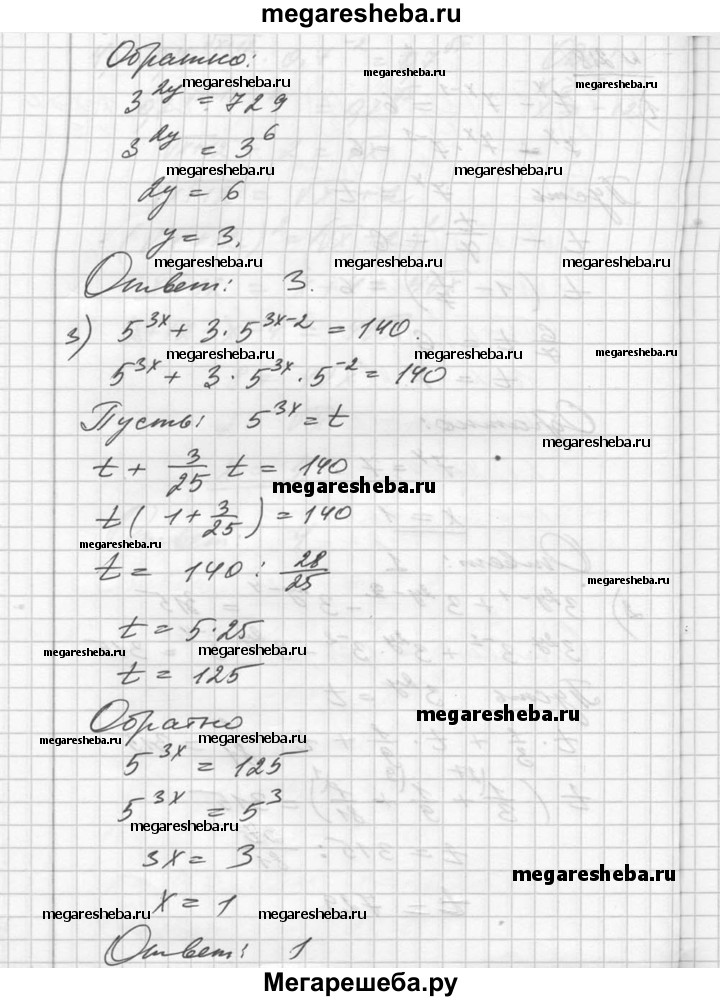 megaresheba.ru
Обратно:
megaresheba.ru megaresheba.ru
3^{2y} = 729
megaresheba.ru
3^{2y} = 3^6
megaresheba.ru megaresheba.ru
2y = 6
y = 3.
megaresheba.ru megaresheba.ru
Ответ: 3.
3) 5^{3x} + 3 · 5^{3x-2} = 140.
megaresheba.ru megaresheba.ru megaresheba.ru
5^{3x} + 3 · 5^{3x} · 5^{-2} = 140
Пусть: 5^{3x} = t
megaresheba.ru
t + 3/25 t = 140
megaresheba.ru
t ( 1 + 3/25 ) = 140
megaresheba.ru
t = 140 : 28/25
megaresheba.ru
t = 5 · 25
megaresheba.ru
t = 125
megaresheba.ru
Обратно
megaresheba.ru
megaresheba.ru megaresheba.ru
5^{3x} = 125
5^{3x} = 5^3
megaresheba.ru
3x = 3
megaresheba.ru
x = 1
megaresheba.ru megaresheba.ru
Ответ: 1
Мегарешеба.ру